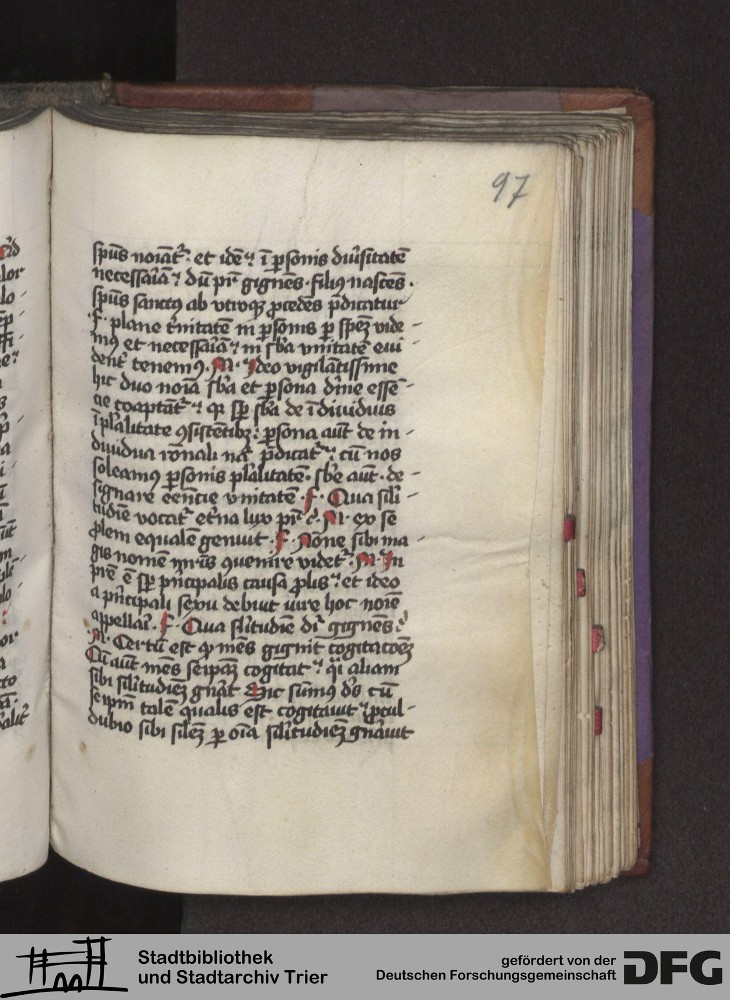 97
sp̄us noīat᷑ et idē ī ꝑsonis diu̾sitatē
necessaīa dū pr̄ gignēs filiꝯ nascēs ·
sp̄us sanctꝯ ab vtroqꝫ ꝓcedēs p̄dicatur
f · plane t̾nitatē in ꝑsonis ꝑ spēꝫ vide -
mꝯ et necessaīa in sb̄a vnitatē eui
dent᷑ tenemꝯ · M · Ideo vigilātissime
hic duo noīa sb̄a et ꝑsona dīne essē -
de sb̄a de īdiuiduis
īpl̄alitate ꝯsistētibꝫ ꝑsona aūt de in -
diuidua rōnali nā p̄dicat᷑ cū nos
soleamꝯ ꝑsonis pl̄alitatē · sb̄e aūt · de -
signare eēncie vnitatē · f · Qua sīli -
tudīe vocat᷑ et̾na lux pr̄ · M · ex se
ꝓlem equalē genuit · f · Nōne sibi ma -
gis nomē mr̄is ꝯuenire videt᷑ · M · In
pr̄e ē sp̄ p̄ncipalis causa ꝓlis et ideo
a p̄ncipali sexu debuit iure hoc noīe
appellāi · f · Qua sl̄itudīe dr̄ gignēs
M · Certū est ꝙ mēs gignit cogitacōeꝫ
Cū aūt mēs seip̄aꝫ cogitat q̄i aliam
sibi sīlitudīeꝫ gn̄at Sic sūmꝯ dꝰs cū
seip̄m talē qualis est cogitauit ꝓcul -
dubio sibi silēꝫ ꝑ oīa sīlitudīeꝫ gn̄auit
Stadtbibliothek
und Stadtarchiv Trier
gefördert von der
Deutschen Forschungsgemeinschaft
DFG